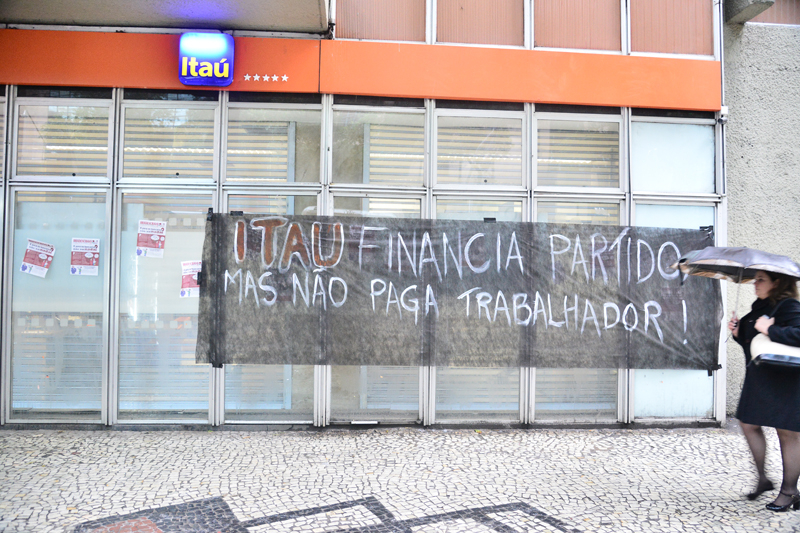 Itaú
ITAU FINANCIA PARTIDO
MAS NÃO PAGA TRABALHADOR !